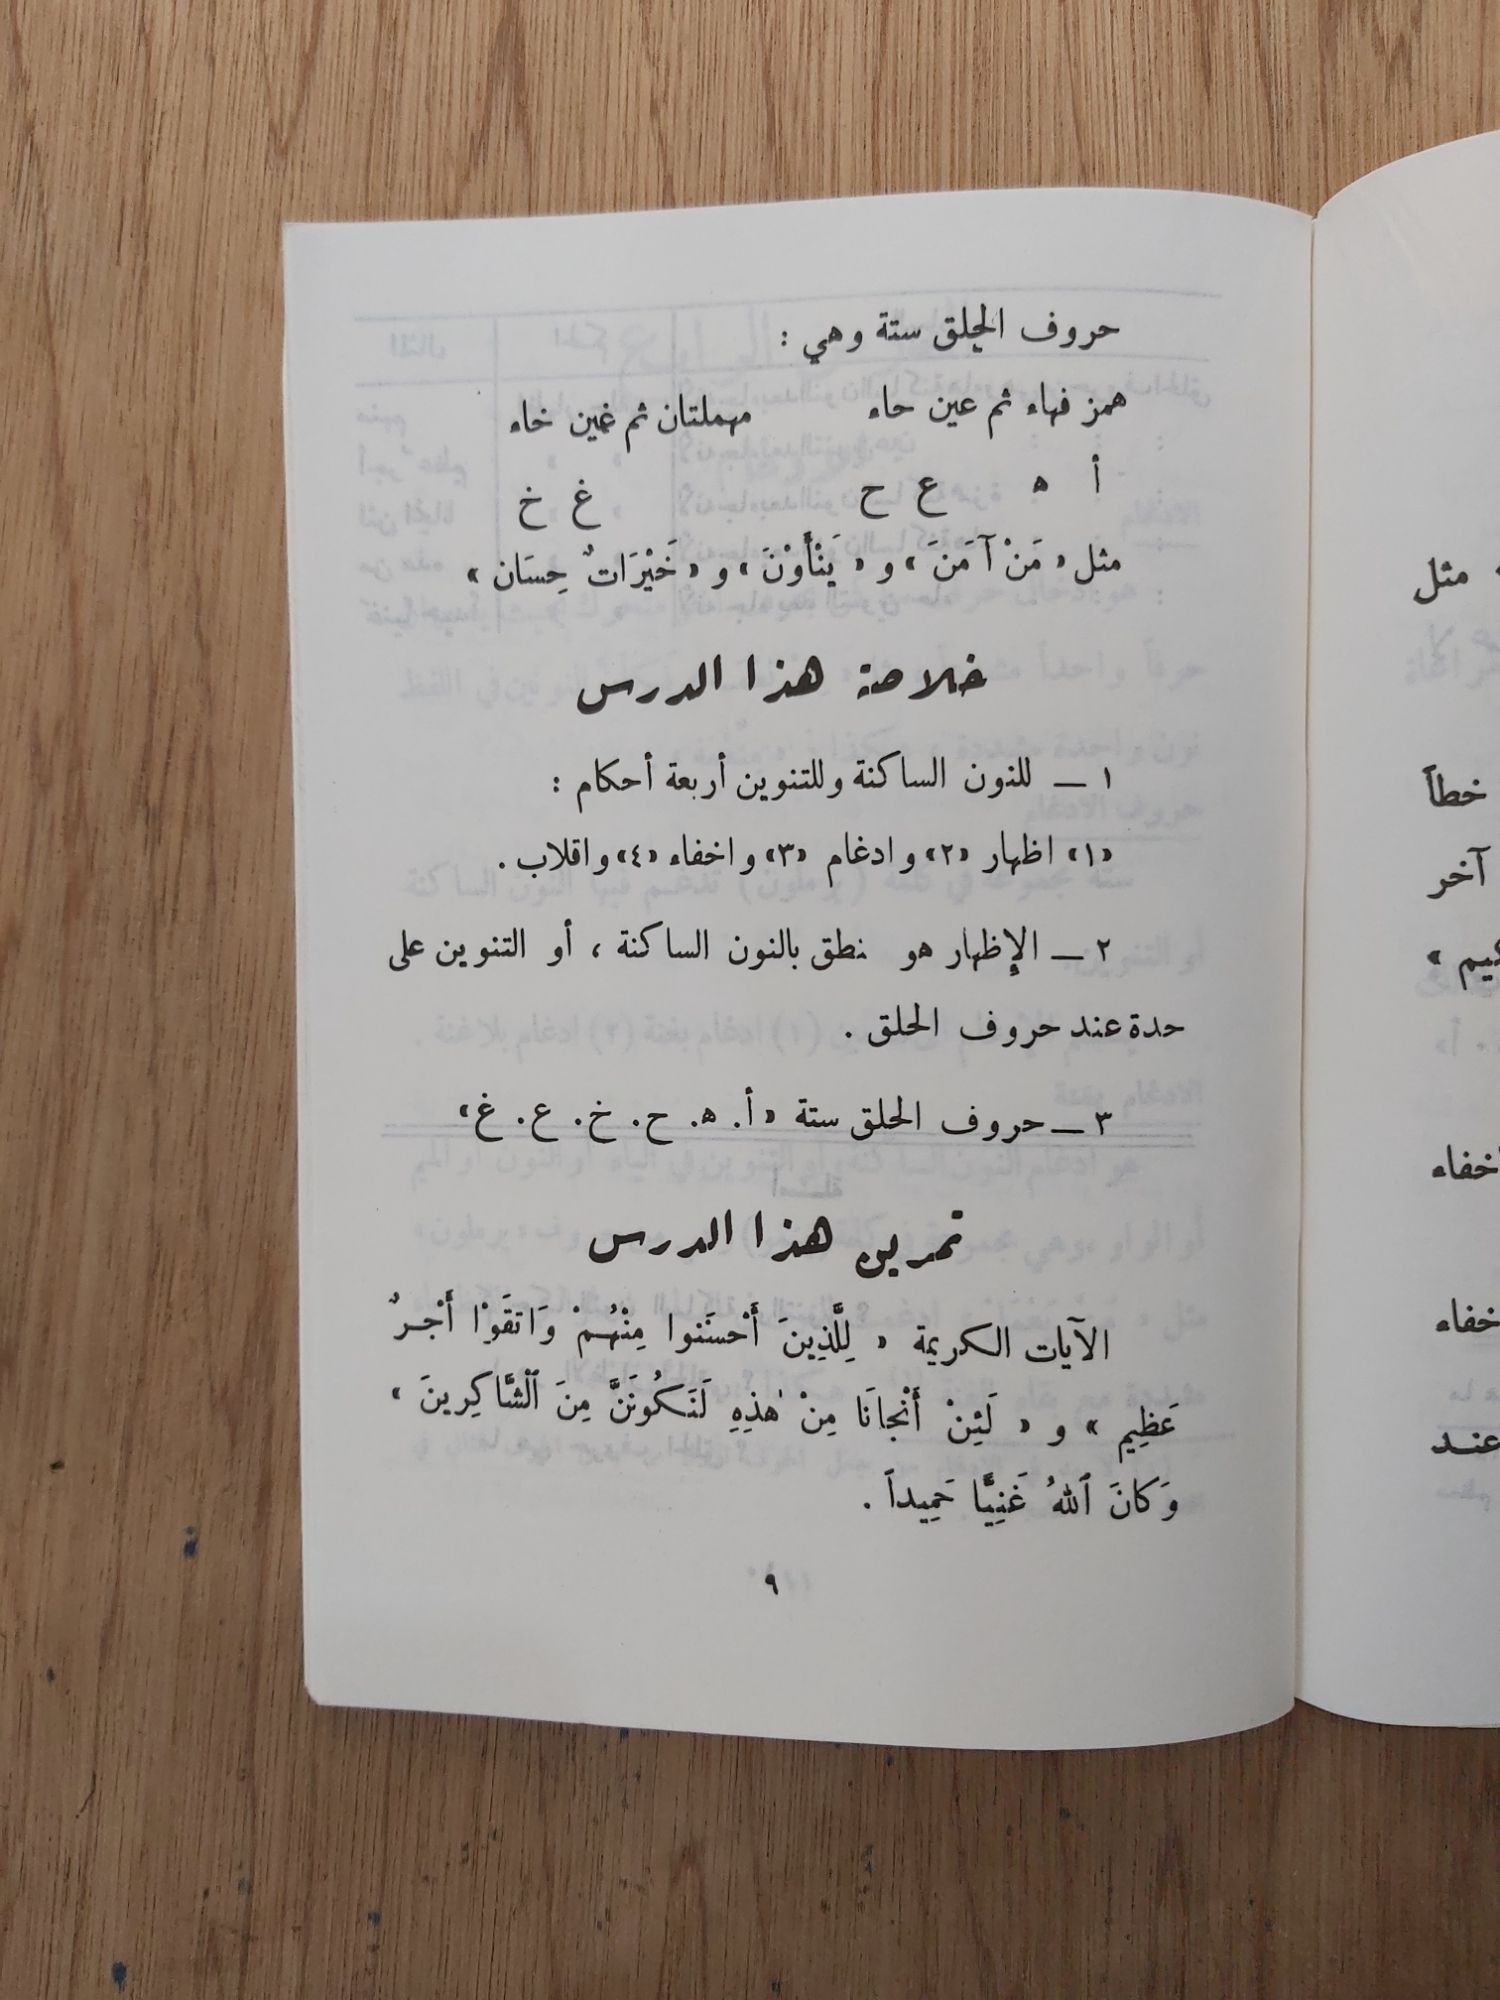 حروف الحلق ستة وهي :
همز فهاء ثم عين حاء مهملتان ثم غين خاء
أ ه ع ح غ خ
مثل « مَنْ آمَنَ » و « يَنْأَوْنَ » و « خَيْرَاتٌ حِسَان »
خلاصة هذا الدرس
١ — للنون الساكنة وللتنوين أربعة أحكام :
«١» اظهار «٢» وادغام «٣» واخفاء «٤» واقلاب .
٢ — الإظهار هو نطق بالنون الساكنة ، أو التنوين على
حدة عند حروف الحلق .
٣ — حروف الحلق ستة « أ. ه. ح. خ. ع. غ »
تمرين هذا الدرس
الآيات الكريمة « لِلَّذِينَ أَحْسَنوا مِنْهُمْ وَاتَقَوْا أَجْرٌ
عَظِيم » و « لَئِنْ أَنْجانَا مِنْ هٰذِهِ لَنَكُونَنَّ مِنَ ٱلشَّاكِرِينَ »
وَكانَ ٱللهُ غَنِيًّا حَمِيداً .
٩
مثل
خطأ
آخر
اخفاء
خفاء
عند